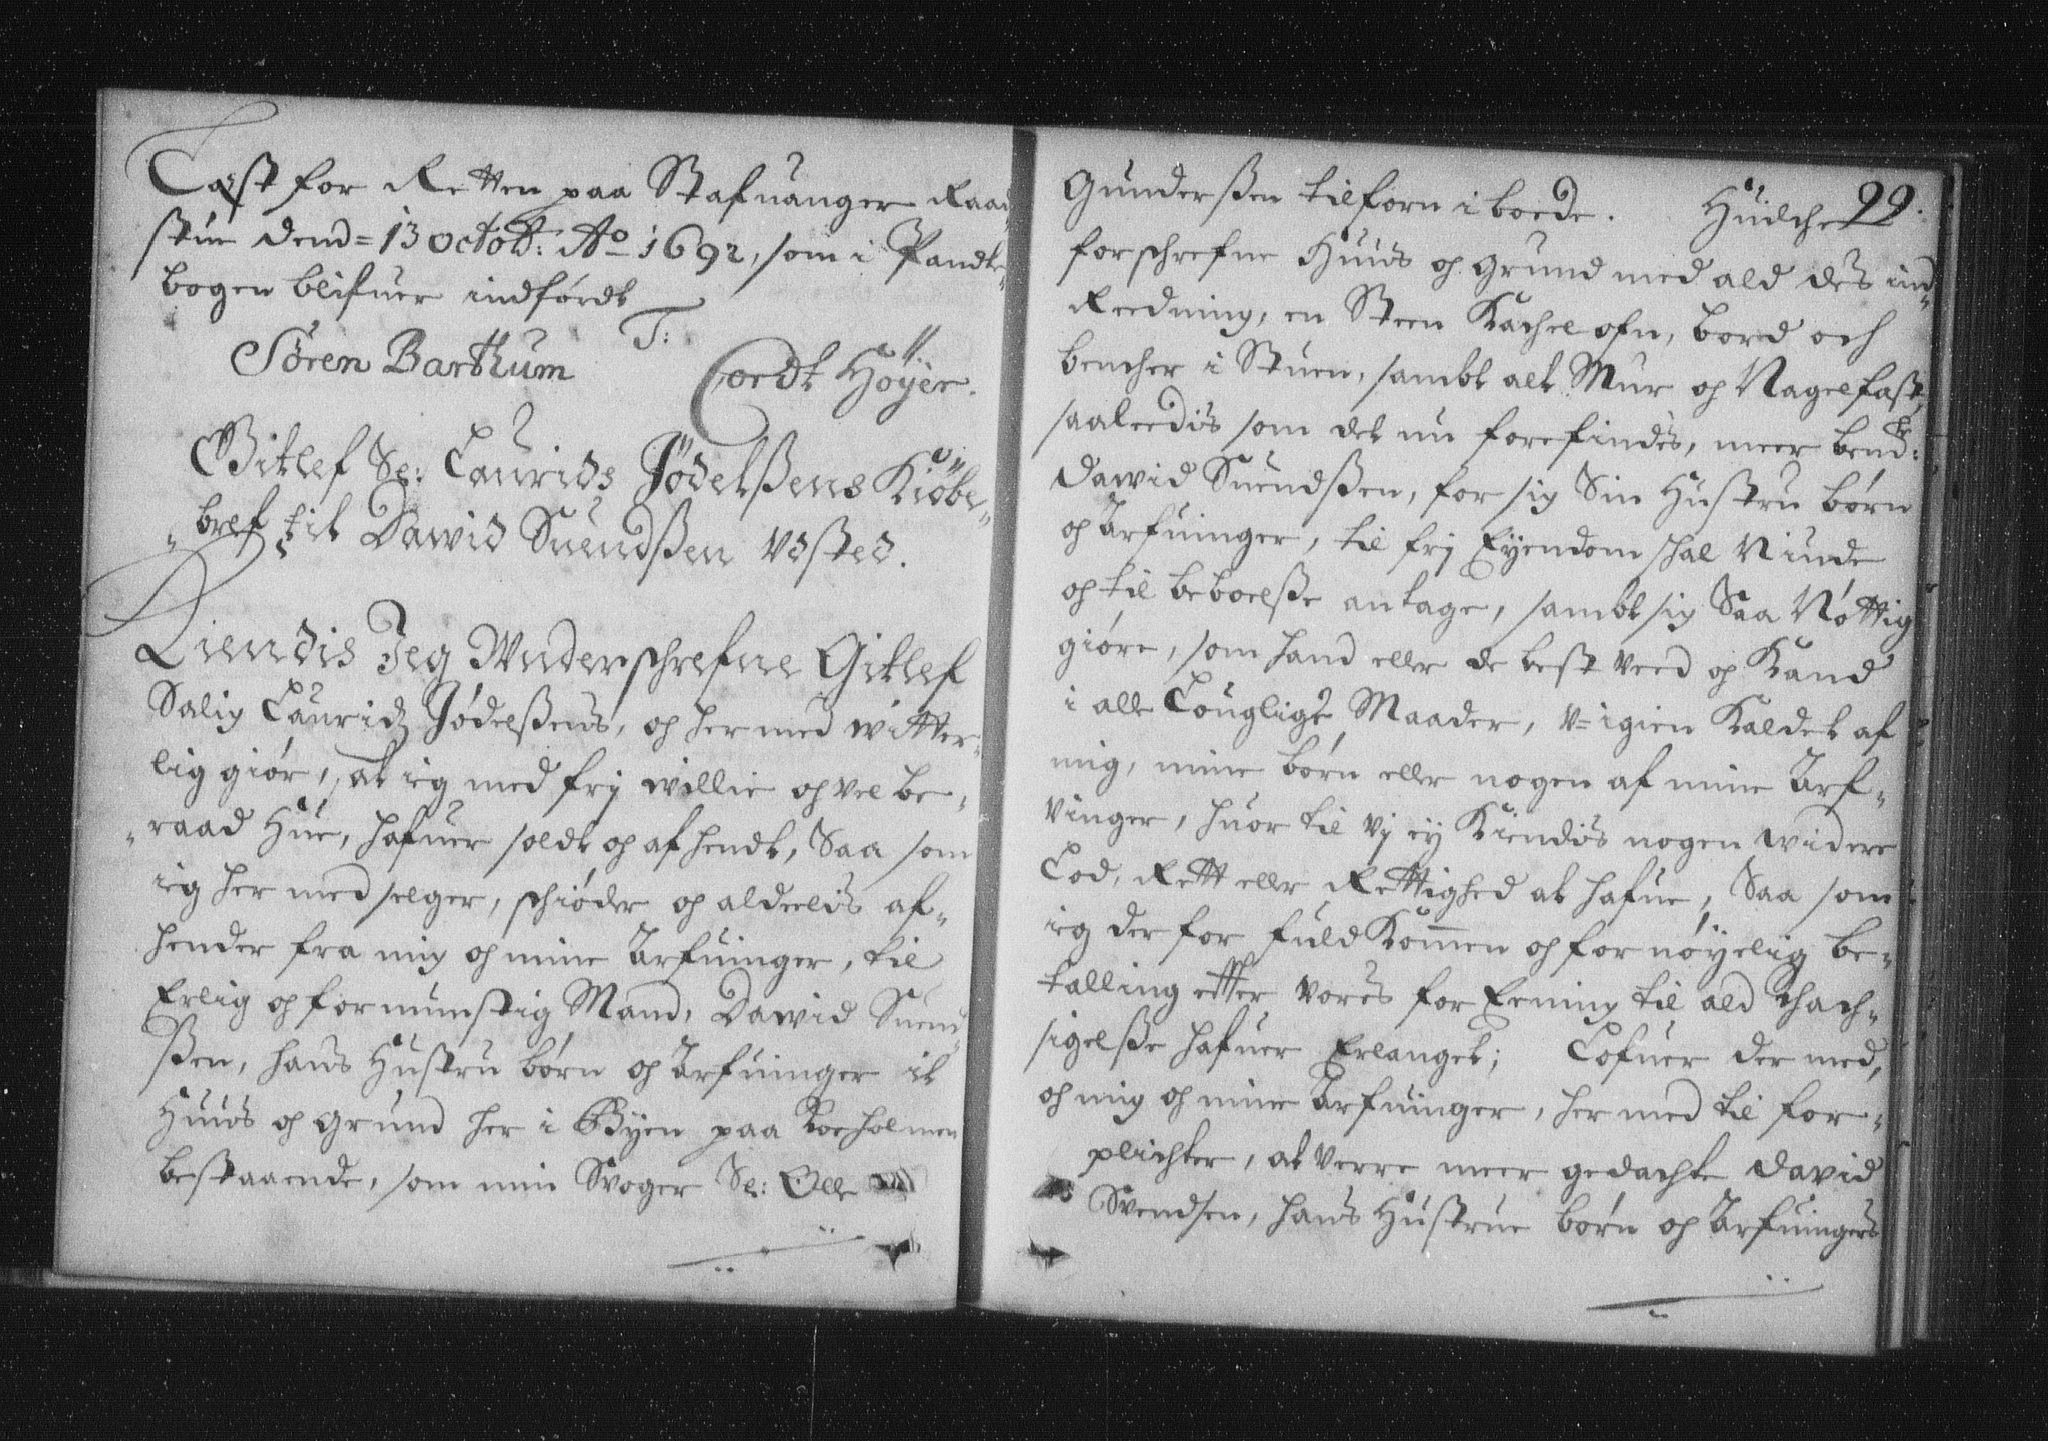 Læst for Retten paa Stafuanger Raad
stue dend= 13 octob: Ao 1692, som i Pandte-
bogen blifuer indfördt
T:
Sören Barthum Cordt Höyer.
Gitlef Sl: Laurids Jödelßens Kiöbe-
bref til Dawid Suendßen vdsted.
Kiendis Jeg Underschrefne Gitlef
Salig Lauridz Jödelßens, og her med witter-
lig giör, at ieg med frj willie og vel be-
raad Hue, hafuer soldt og afhendt, Saa som
ieg her med selger, schiöder og aldeelis af-
hender fra mig og mine Arfuinger, til
Erlig og fornumstig Mand, Dawid Suend-
ßen, hans Hustru börn og Arfuinger it
Huus og grund her i Byen paa Koeholmen
bestaaende, som min Svoger Sl: Olle
Gunderßen tilforn i boede. Huilche 99.
forschrefne Huus og grund med ald des ind-
Reedning, en Steen Kachelofn, bord och
bencher i Stuen, sambt alt Muur og Nagelfast,
saaleedis som det nu forefindes, meer bend:te
Dawid Suendßen, for sig Sin Hustru börn
og Arfuinger, til frj Eyendom schal Niude
og til beboelße antage, sambt sig Saa Nöttig
giöre, som hand eller de best veed og Kand
i alle Louglige Maader, v=igien Kaldet af
mig, mine börn eller nogen af mine Arf-
vinger, huor til vj ey Kiendis nogen widere
Lod, Rett eller Rettighed at hafue, Saa som
ieg der for fuldkommen og fornöyelig be-
talling efter vores forEening til ald thach-
sigelße hafuer Erlanget; Lofuer der med,
og mig og mine Arfuinger, her med til for-
plichter, at verre meer gedachte David
Svendsen, hans Hustrue börn og Arfuingers